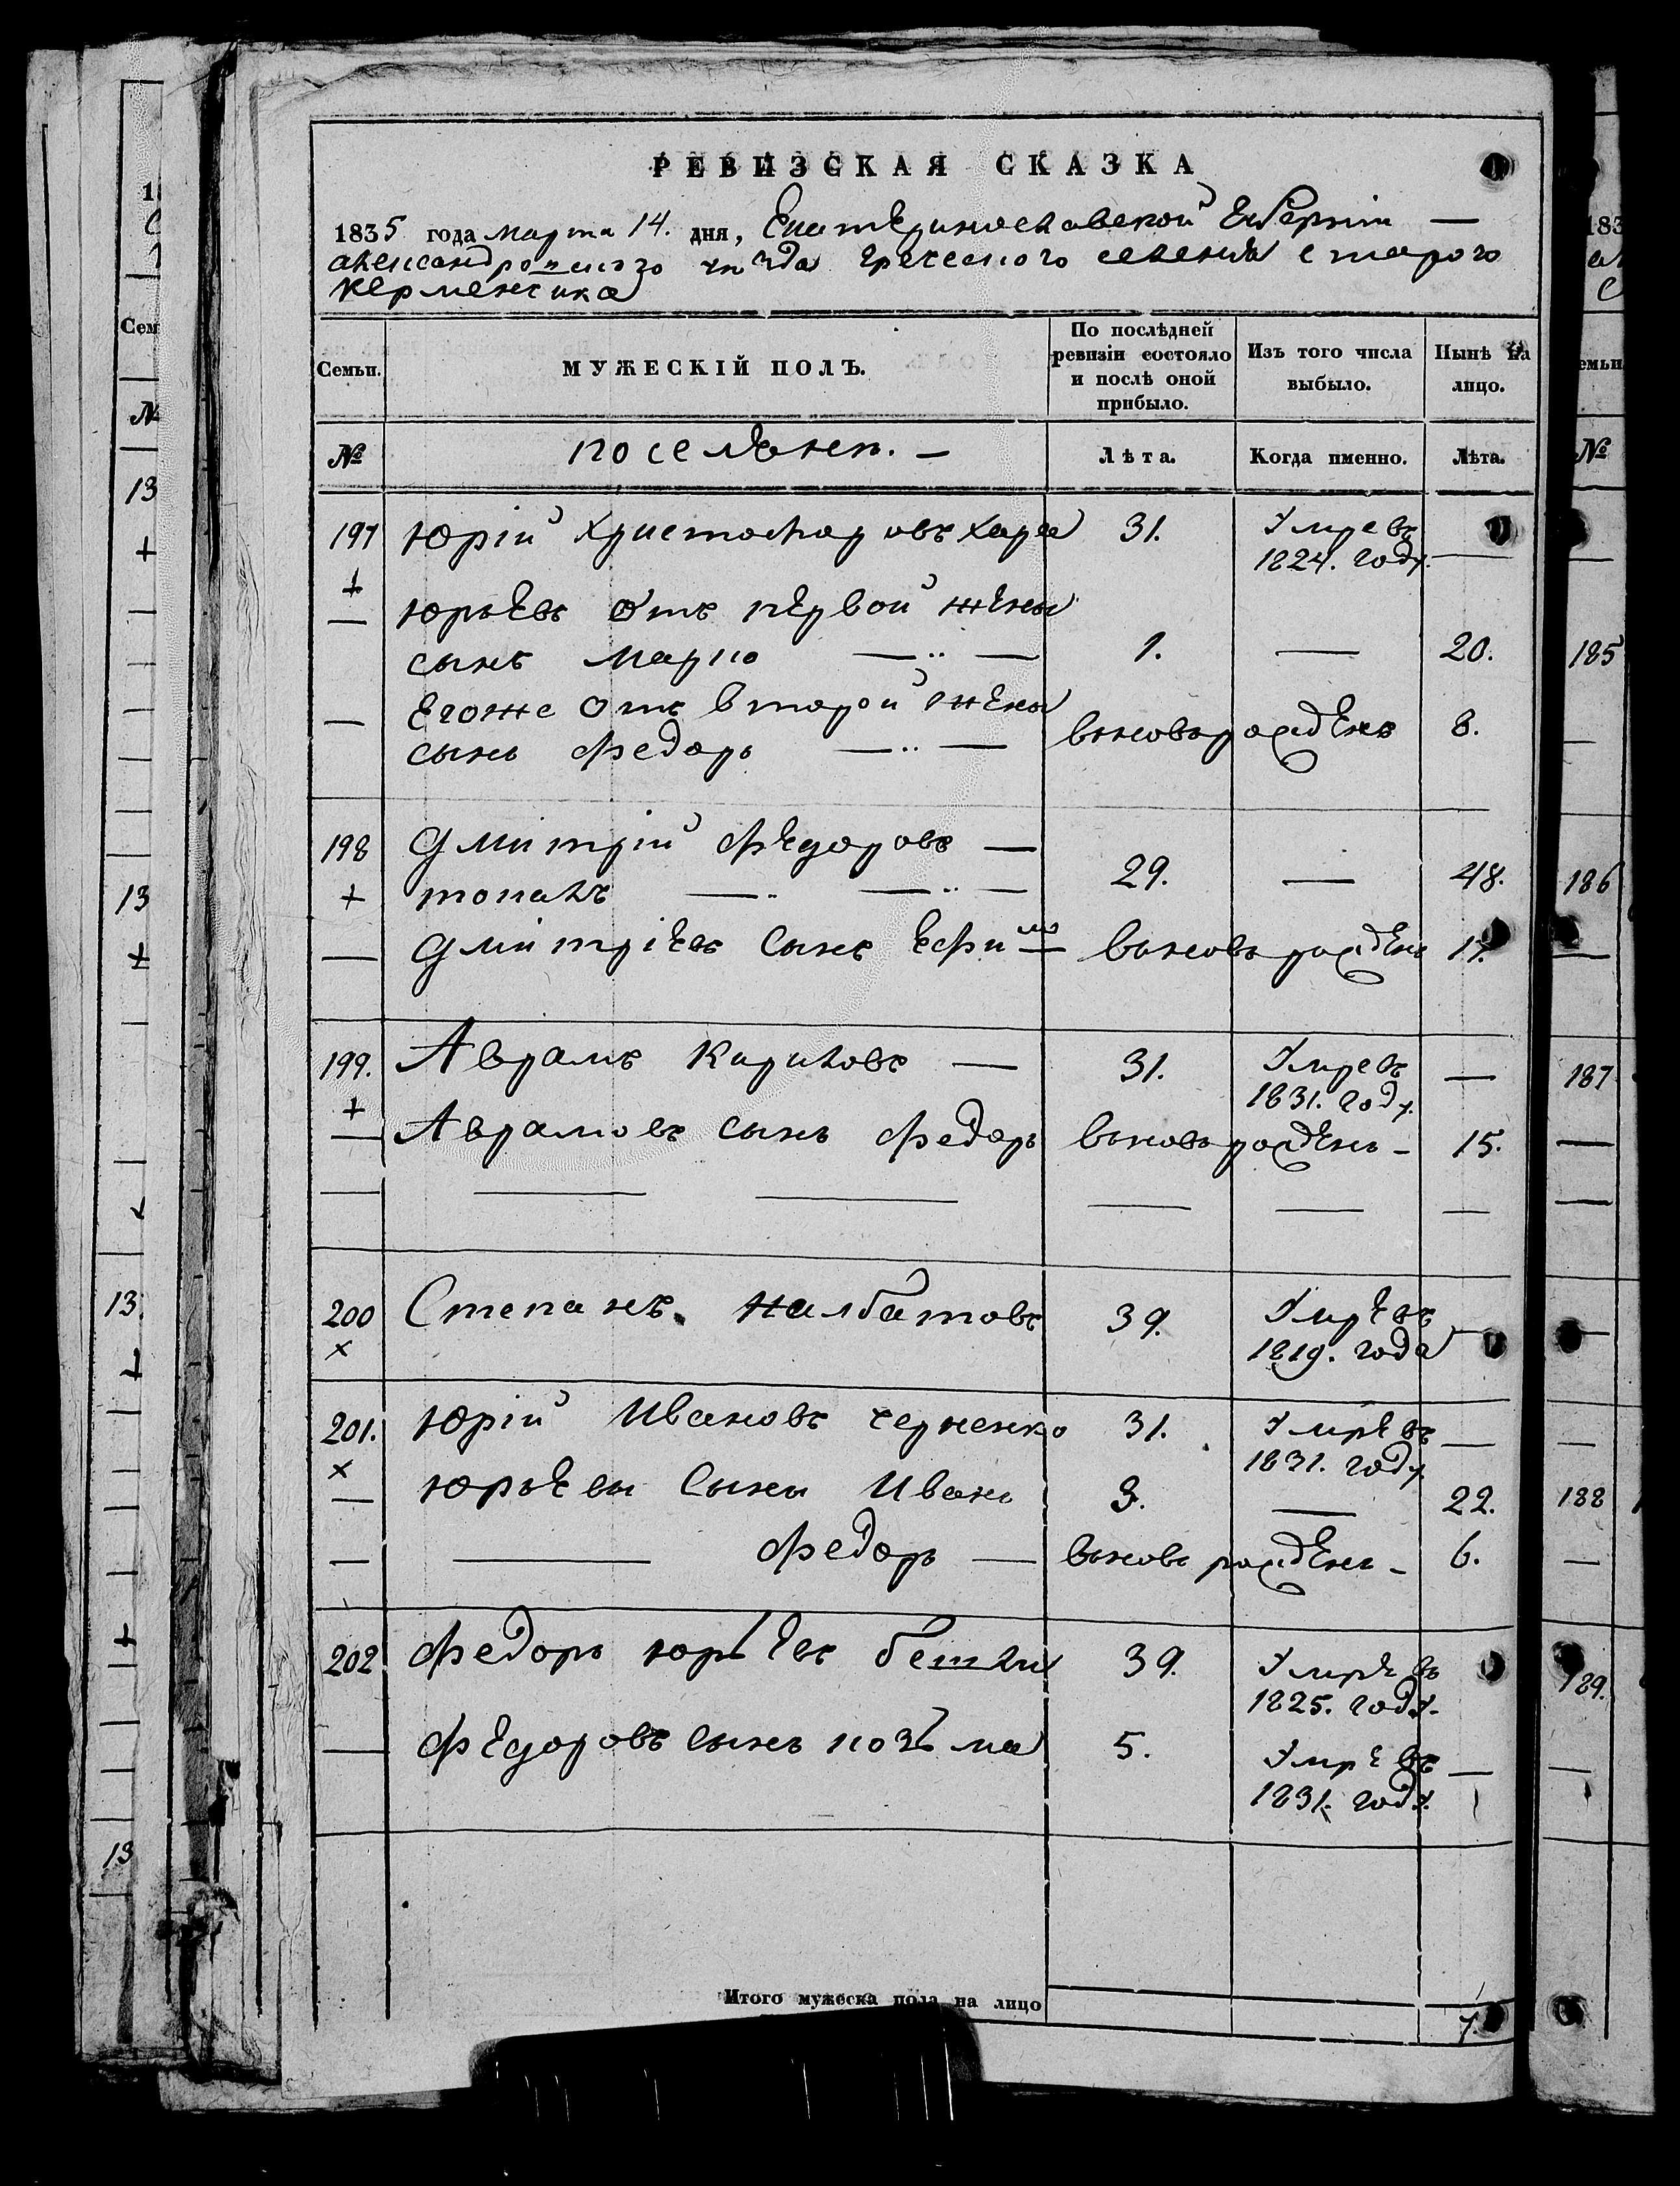 РЕВИЗСКАЯ СКАЗКА
1835 года марта 14. дня, Екатеринославской губерніи —
александровского уѣзда греческого селенія старого
керменчика
Семьи. МУЖЕСКІЙ ПОЛЪ. По послѣдней ревизіи состояло и послѣ оной прибыло. Изъ того числа выбыло. Нынѣ на лицо.
№ поселянъ. — Лѣта. Когда именно. Лѣта.
197 Юрій Христофоровъ Хара 31. Умре въ 1824. году. —
+
— Юрьевъ отъ первой жены
сынъ Марко — 1. — 20.
— Егоже отъ второй жены
сынъ Федоръ — вновь рожденъ 8.
198 Дмитрій Федоровъ —
+ топалъ — 29. — 48.
— Дмитріевъ сынъ Ефимъ — вновь рожденъ 17.
199. Аврамъ Кириловъ — 31. Умре въ 1831. году. —
+
— Аврамовъ сынъ Федоръ вновь рожденъ – 15.
200 Степанъ. Налбатовъ 39. Умре въ 1819. года —
×
201. Юрій Ивановъ черненко 31. Умре въ 1831. году —
×
— Юрьевы сыны Иванъ 3. — 22.
— — Федоръ — вновь рожденъ – 6.
202 Федоръ Юрьевъ 39. Умре въ 1825. году. —
— Федоровъ сынъ козьма 5. Умре въ 1831. году. —
Итого мужеска пола на лицо 7.
Сем
№
13
+
13
+
13
+
+
13
183
емьи
№
185
186
187
188
189.